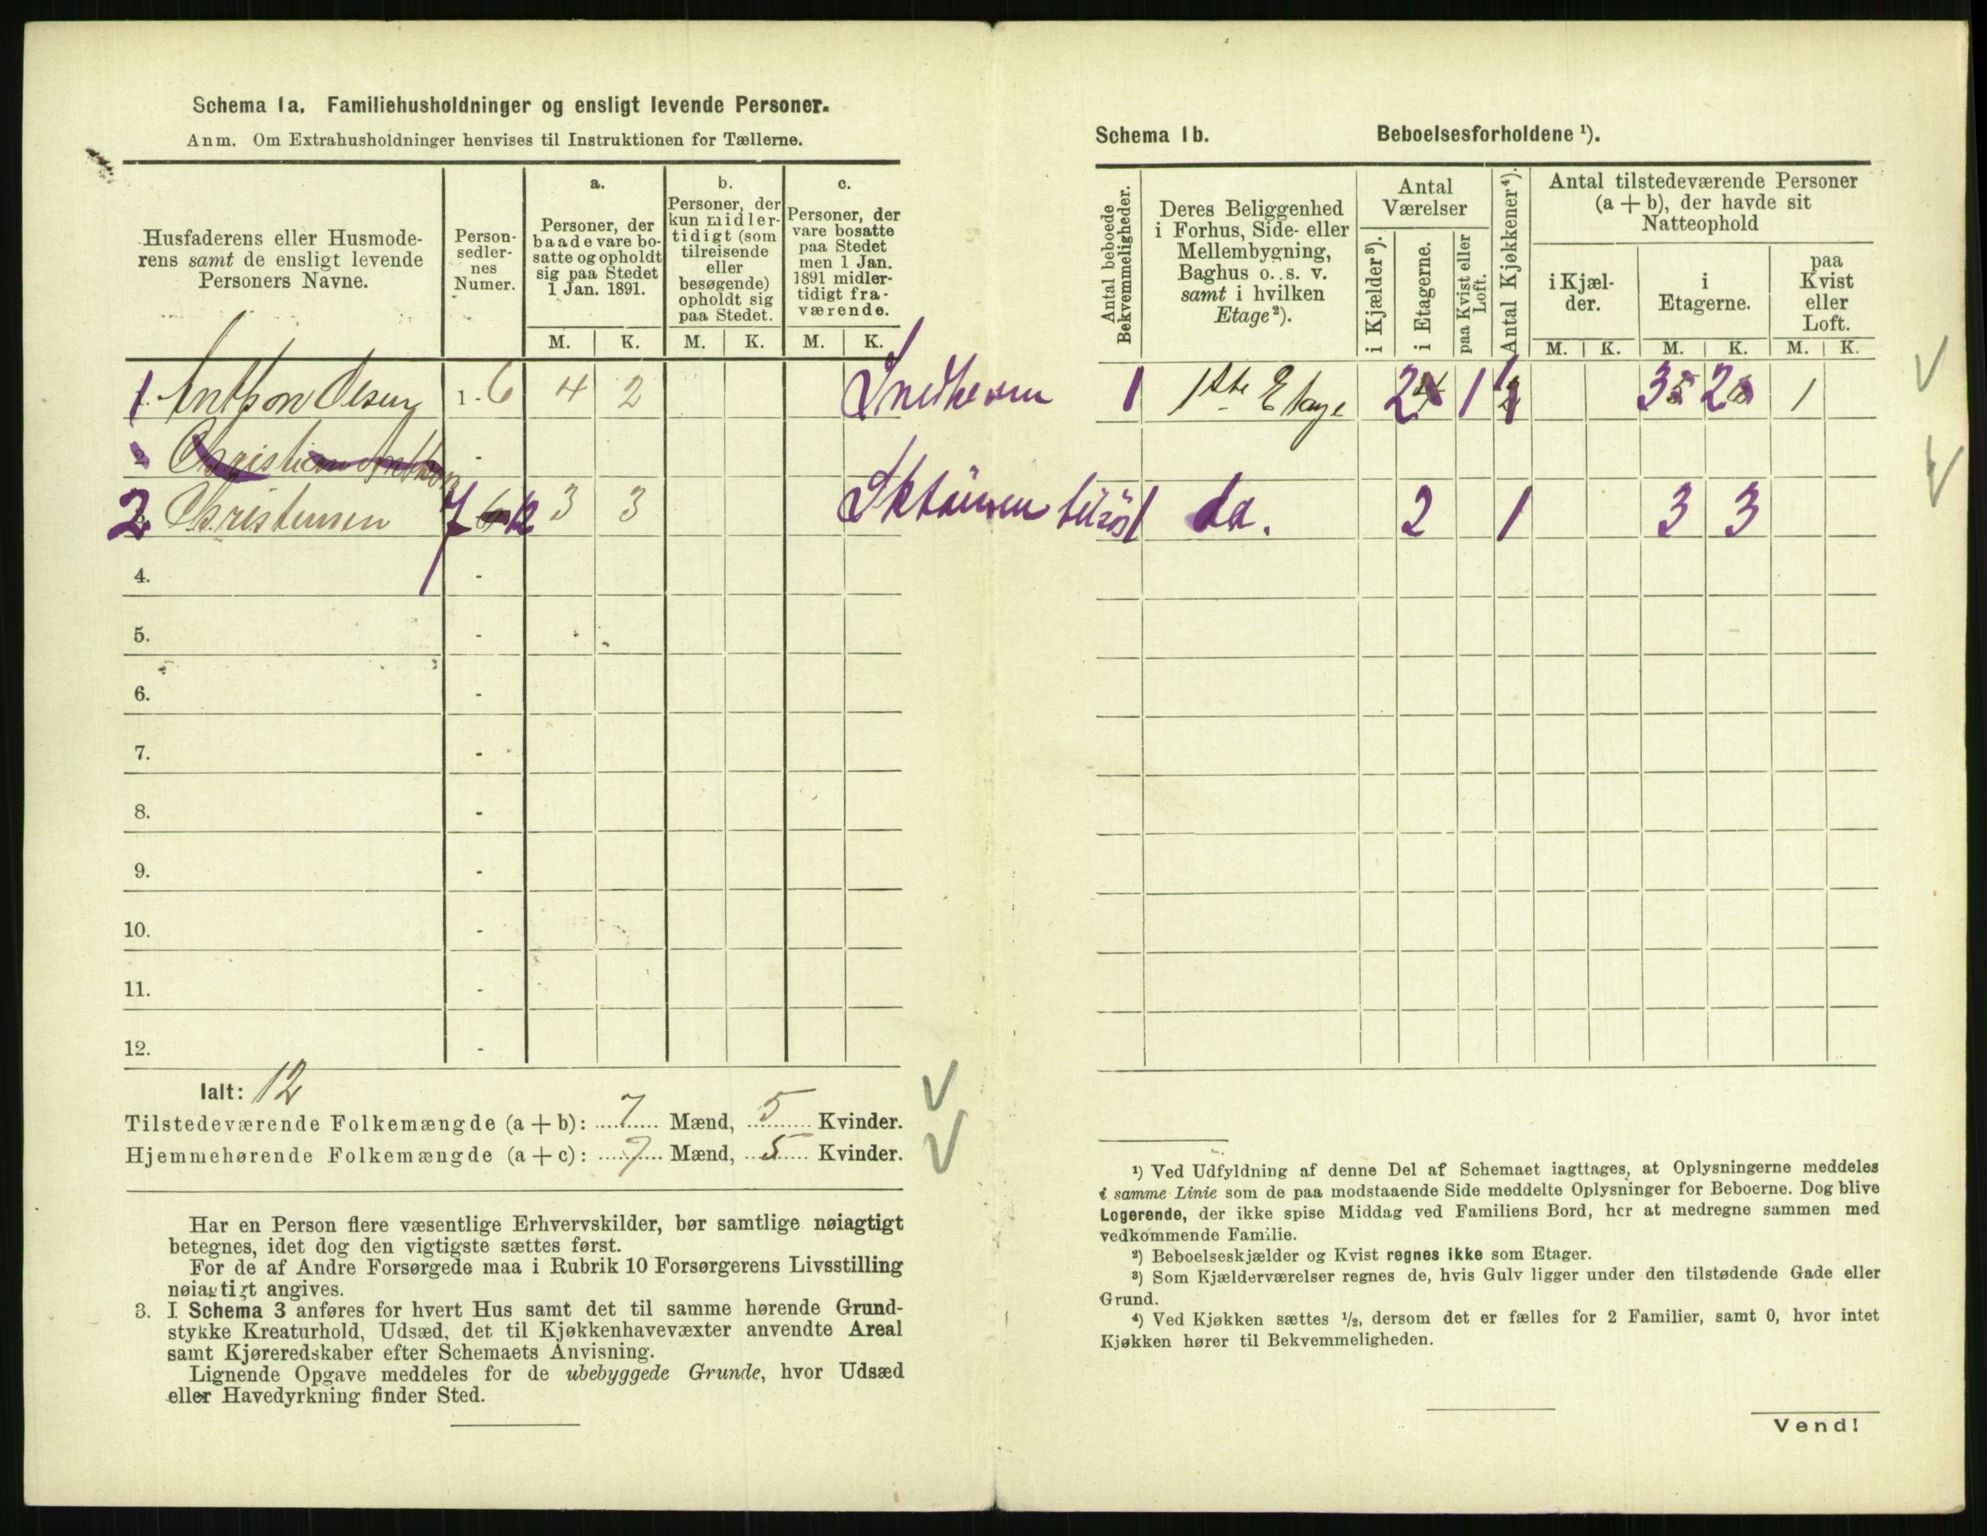 Schema 1a. Familiehusholdninger og ensligt levende Personer.
Anm. Om Extrahusholdninger henvises til Instruktionen for Tællerne.
Husfaderens eller Husmoderens samt de ensligt levende Personers Navne.
Personsedlernes Numer.
a.
Personer, der baade vare bosatte og opholdt sig paa Stedet 1 Jan. 1891.
b.
Personer, der kun midlertidigt (som tilreisende eller besøgende) opholdt sig paa Stedet.
c.
Personer, der vare bosatte paa Stedet men 1 Jan. 1891 midlertidigt fraværende.
M. K. M. K. M. K.
1 Anthon Olsen 1 - 6 4 2
Christian Anthon
2 Christensen 7 12 3 3
4. -
5. -
6. -
7. -
8. -
9. -
10. -
11. -
12. -
Ialt: 12
Tilstedeværende Folkemængde (a + b): 7 Mænd, 5 Kvinder.
Hjemmehørende Folkemængde (a + c): 7 Mænd, 5 Kvinder.
Har en Person flere væsentlige Erhvervskilder, bør samtlige nøiagtigt
betegnes, idet dog den vigtigste sættes først.
For de af Andre Forsørgede maa i Rubrik 10 Forsørgerens Livsstilling
nøiagtigt angives.
3. I Schema 3 anføres for hvert Hus samt det til samme hørende Grund-
stykke Kreaturhold, Udsæd, det til Kjøkkenhavevæxter anvendte Areal
samt Kjøreredskaber efter Schemaets Anvisning.
Lignende Opgave meddeles for de ubebyggede Grunde, hvor Udsæd
eller Havedyrkning finder Sted.
Schema 1b. Beboelsesforholdene ¹).
Antal beboede Bekvemmeligheder.
Deres Beliggenhed i Forhus, Side- eller Mellembygning, Baghus o. s. v. samt i hvilken Etage²).
Antal Værelser
i Kjælder³).
i Etagerne.
paa Kvist eller Loft.
Antal Kjøkkener⁴).
Antal tilstedeværende Personer (a + b), der havde sit Natteophold
i Kjælder.
i Etagerne.
paa Kvist eller Loft.
M. K. M. K. M. K.
1 1ste Etage 2 1 1 3 2 1
1 do. 2 1 3 3
¹) Ved Udfyldning af denne Del af Schemaet iagttages, at Oplysningerne meddeles
i samme Linie som de paa modstaaende Side meddelte Oplysninger for Beboerne. Dog blive
Logerende, der ikke spise Middag ved Familiens Bord, her at medregne sammen med
vedkommende Familie.
²) Beboelseskjælder og Kvist regnes ikke som Etager.
³) Som Kjælderværelser regnes de, hvis Gulv ligger under den tilstødende Gade eller
Grund.
⁴) Ved Kjøkken sættes ½, dersom det er fælles for 2 Familier, samt 0, hvor intet
Kjøkken hører til Bekvemmeligheden.
Vend!